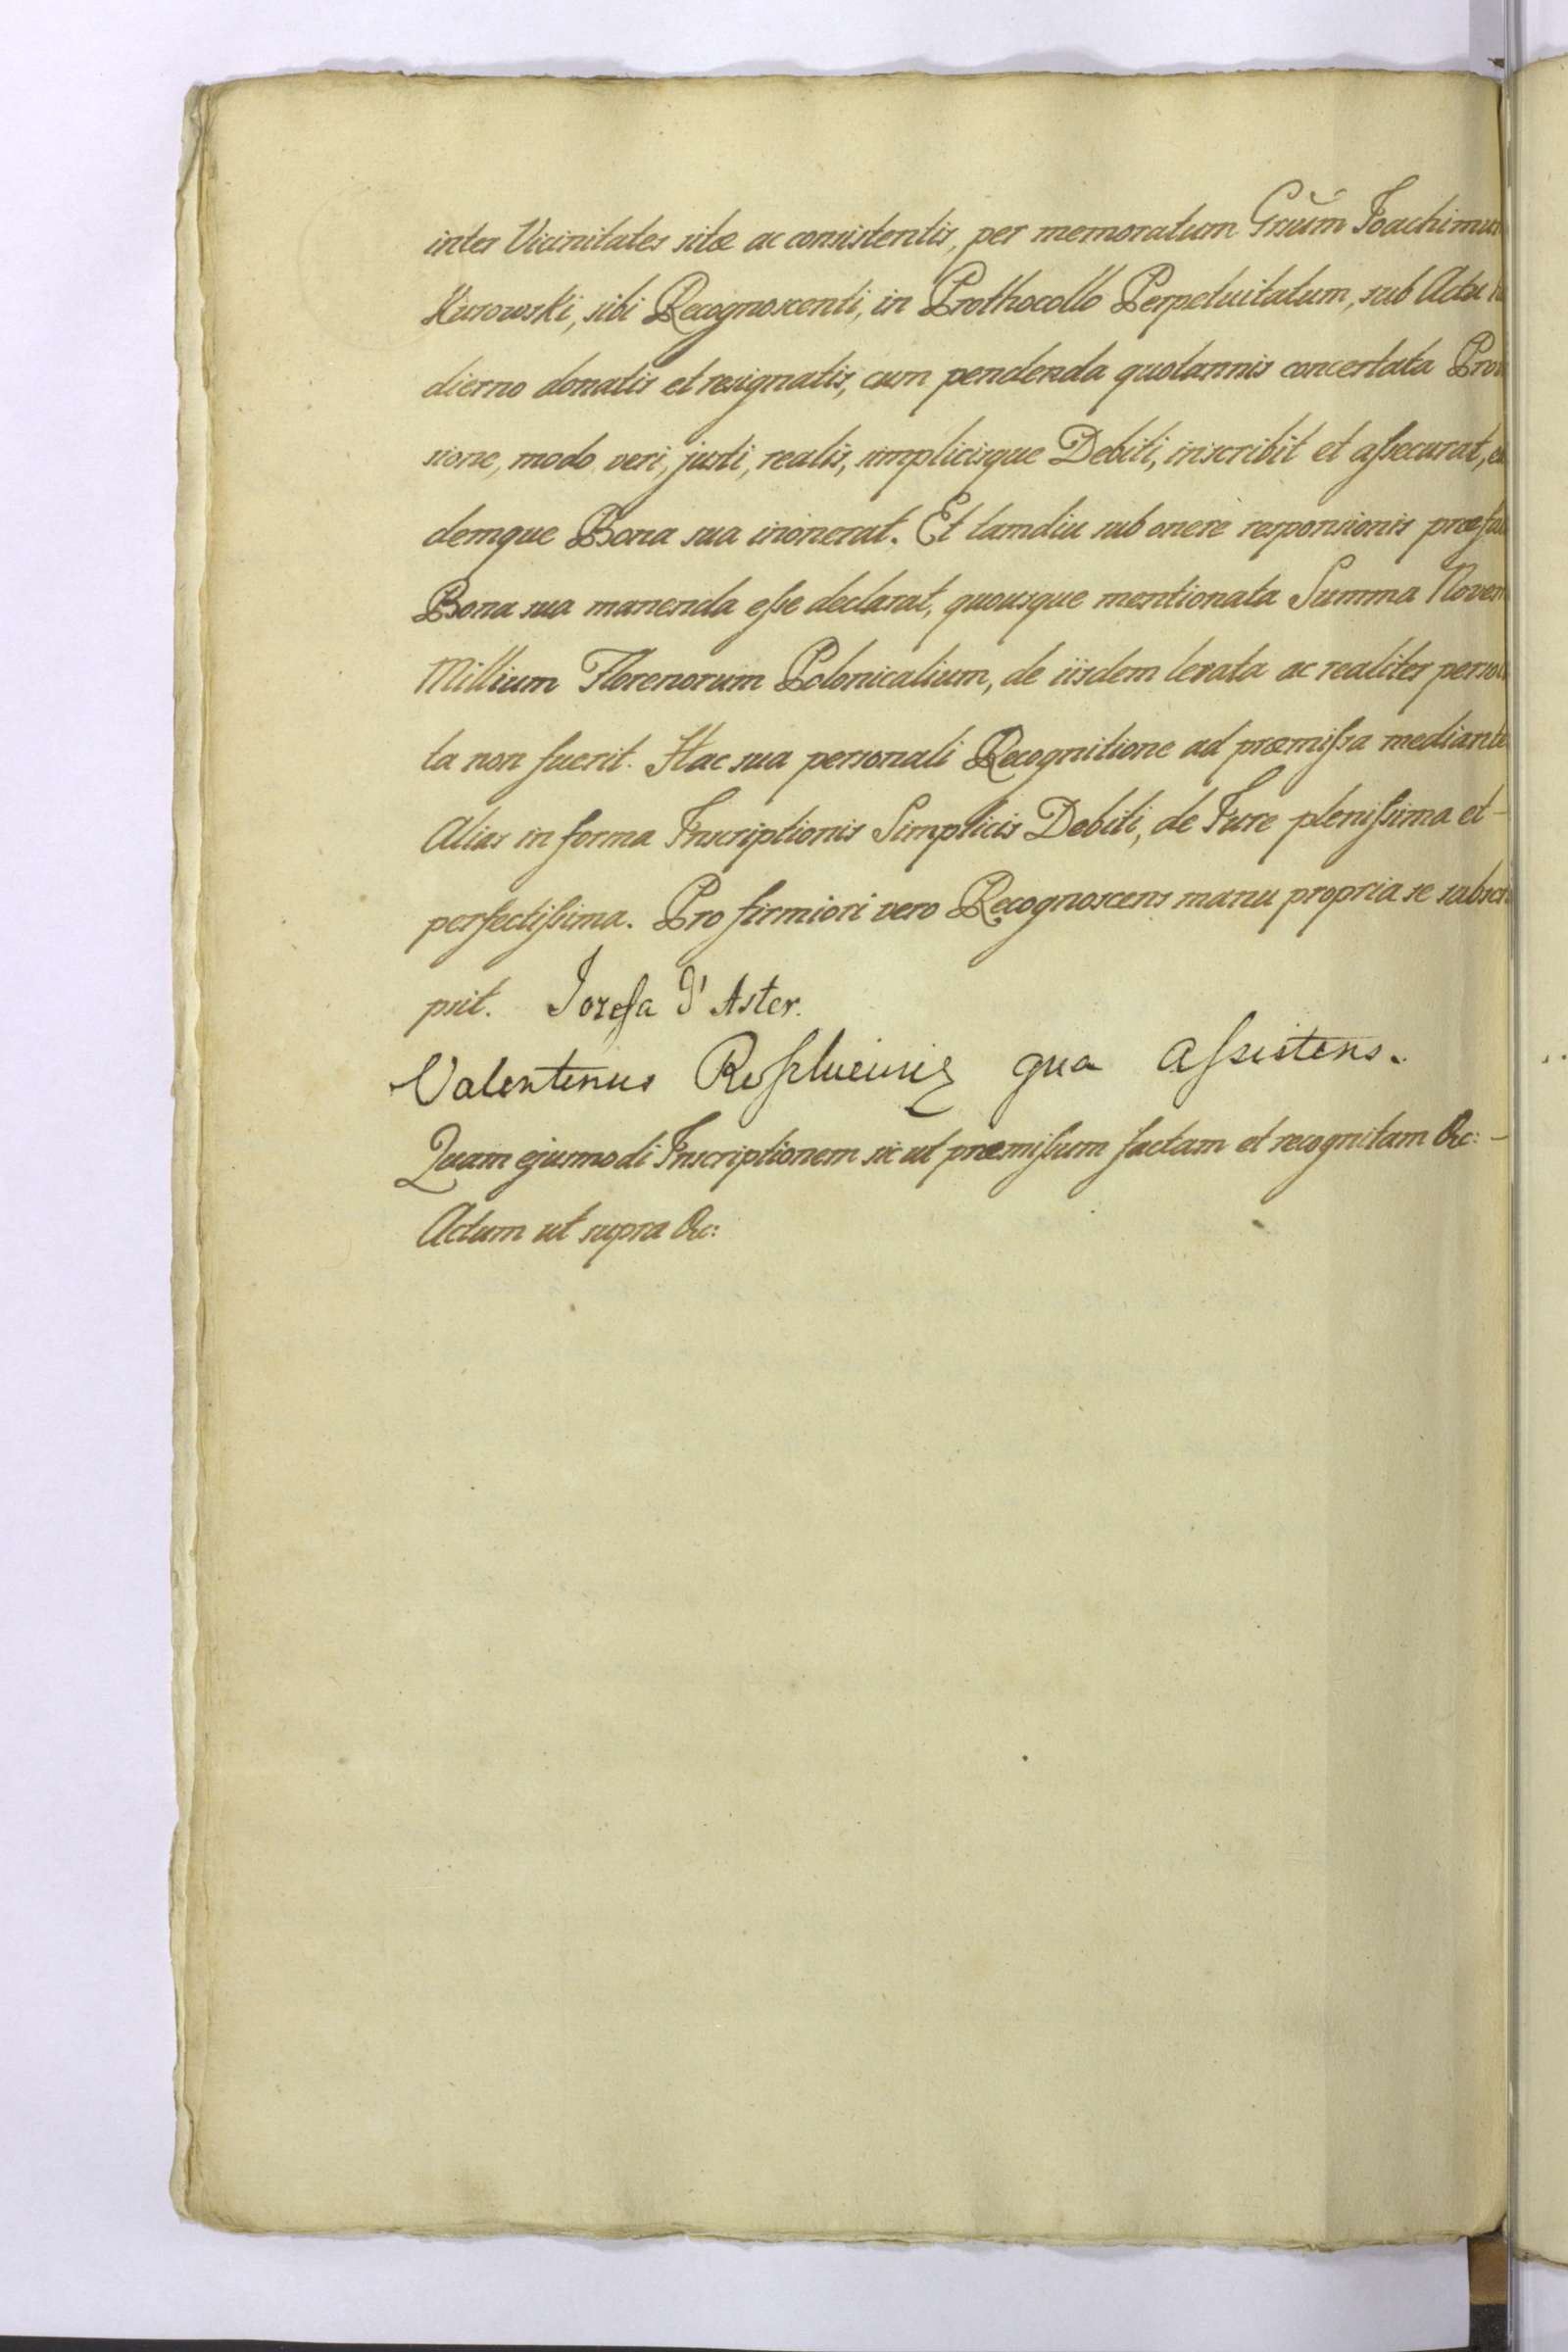 inter Vicinitates sitæ ac consistentis, per memoratum Gnum Joachimum
Kurowski, sibi Recognoscenti, in Prothocollo Perpetuitatum, sub Actu ho
dierno donatis et resignatis, cum pendenda quotannis concertata Provi
sione, modo veri, justi, realis, simplicisque Debiti, inscribit et aſsecurat, ea
demque Bona sua inonerat. Et tamdiu sub onere responsionis præfata
Bona sua manenda eſse declarat, quousque mentionata Summa Novem
Millium Florenorum Polonicalium, de iisdem levata ac realiter persolu
ta non fuerit. Hac sua personali Recognitione ad præmiſsa mediante
Alias in forma Inscriptionis Simplicis Debiti, de Jure pleniſsima et -
perfectiſsima. Pro firmiori vero Recognoscens manu propria se subscri
psit. Jozefa d'Aster.
Valentinus qua Aſsistens.
Quam ejusmodi Inscriptionem sic ut præmiſsum factam et recognitam &c: -
Actum ut supra &c: